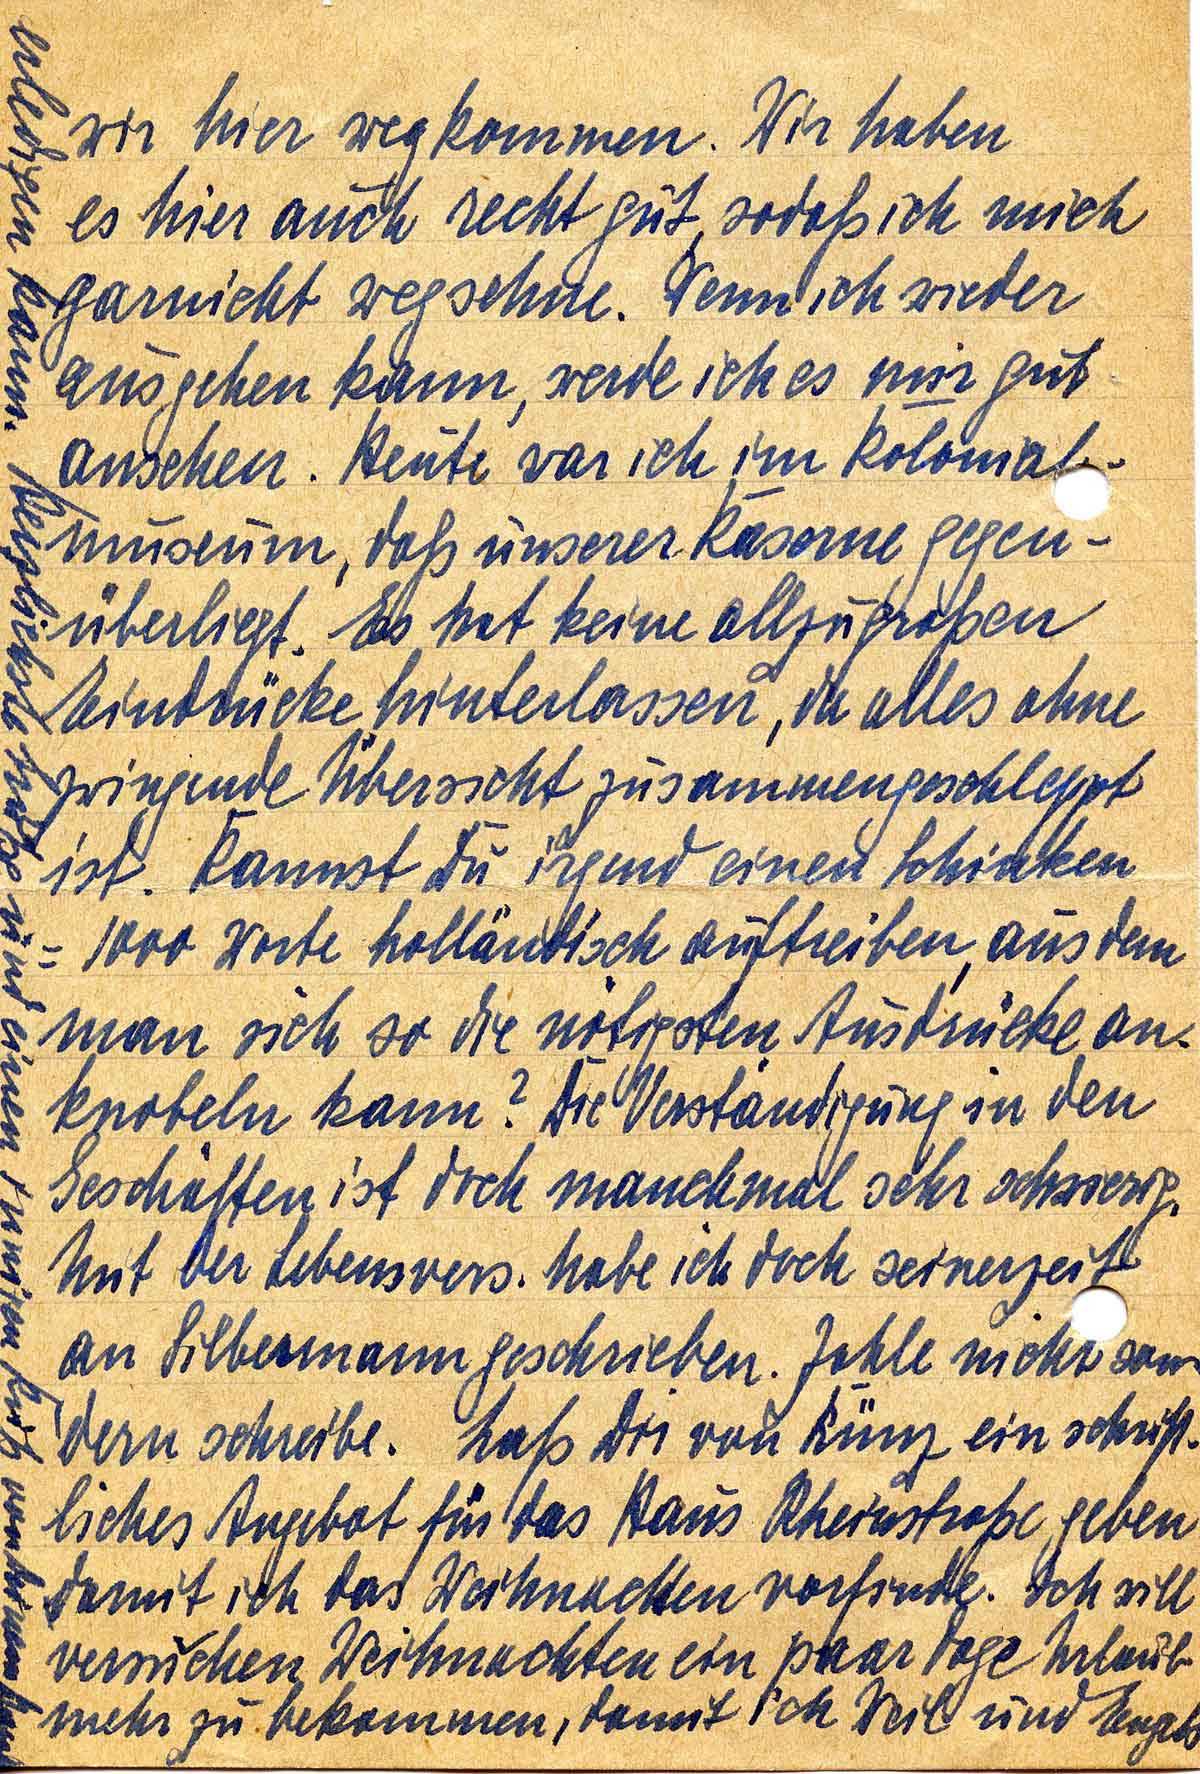 wir hier wegkommen. Wir haben
es hier auch recht gut, sodaß ich mich
garnicht wegsehne. Wenn ich wieder
ausgehen kann, werde ich es mir gut
ansehen. Heute war ich im Kolonial-
museum, daß unserer Kaserne gegen-
überliegt. Es hat keine allzugroßen
Eindrücke hinterlassen, da alles ohne
zwingende Übersicht zusammengeschleppt
ist. Kannst Du irgend einen Schinken
"1000 Worte holländisch auftreiben, aus dem
man sich so die nötigsten Ausdrücke an-
knobeln kann? Die Verständigung in den
Geschäften ist doch manchmal sehr schwierig.
Mit der Lebensvers. habe ich doch seinerzeit
an Silbermann geschrieben. Zahle nicht son-
dern schreibe. Laß Dir von Künz ein schrift-
liches Angebot für das Haus Rheinstraße geben
damit ich das Weihnachten vorfinde. Ich will
versuchen Weihnachten ein paar Tage Urlaub
mehr zu bekommen, damit ich Weil und Engels
erledigen kann. Herzlichste Grüße und einen innigen Kuß von Deinem